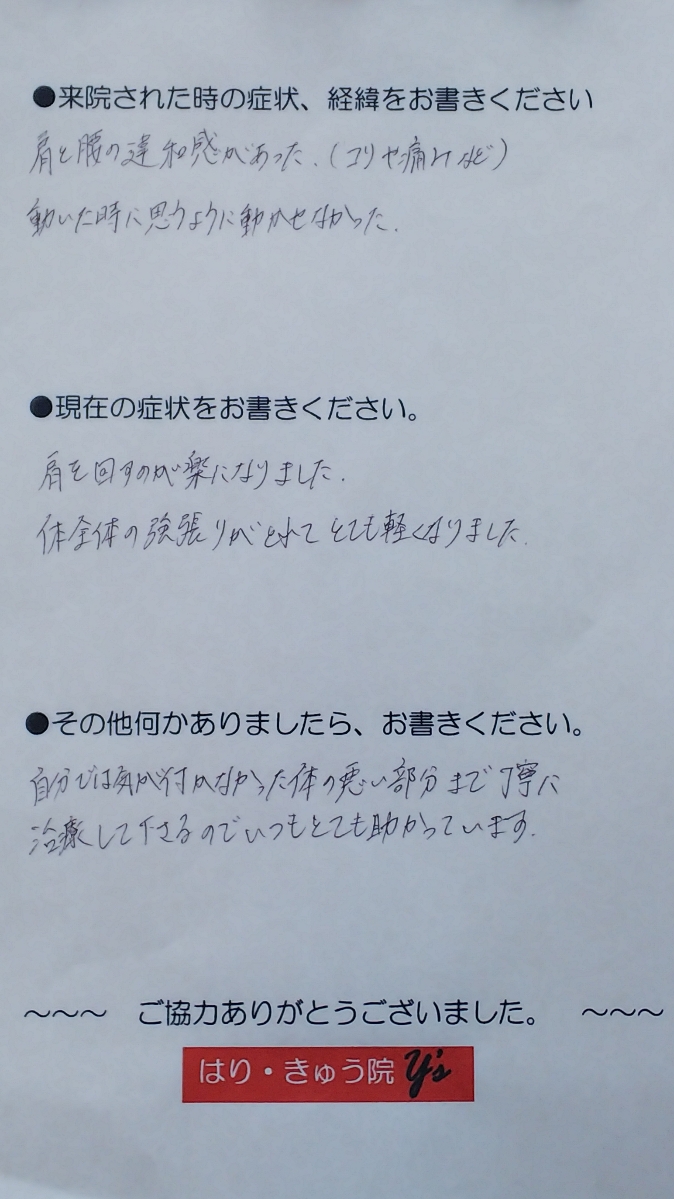 ●来院された時の症状、経緯をお書きください
肩と腰の違和感があった.(コリや痛みなど)
動いた時に思うように動かせなかった.
●現在の症状をお書きください。
肩を回すのが楽になりました.
体全体の強張りがとれてとても軽くなりました.
●その他何かありましたら、お書きください。
自分では気が付かなかった体の悪い部分まで丁寧に
治療して下さるのでいつもとても助かっています.
～～～ ご協力ありがとうございました。 ～～～
はり・きゅう院 Y's